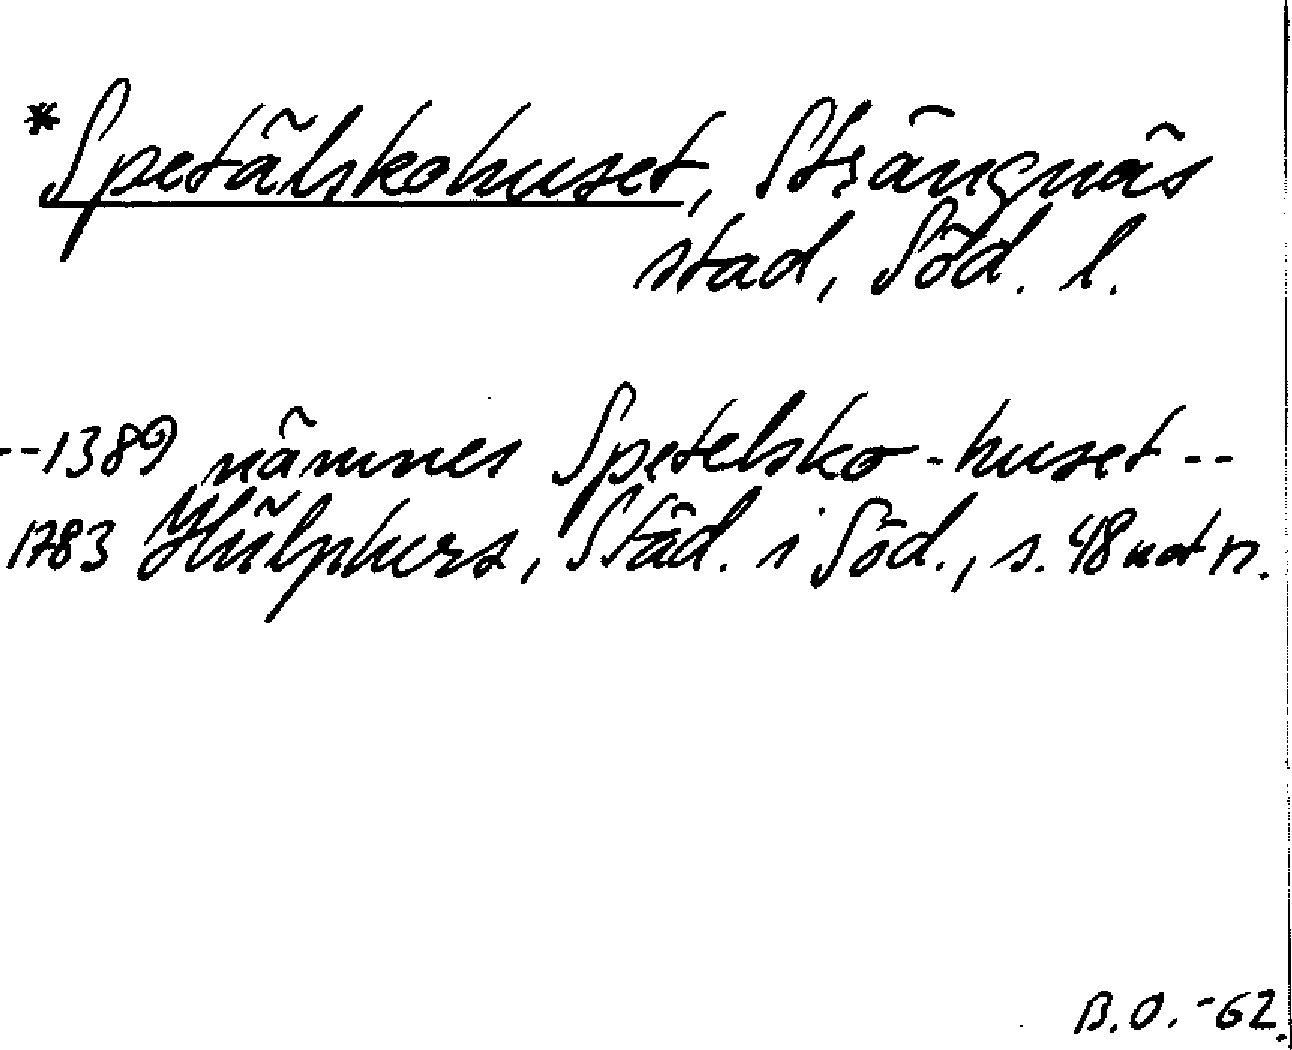 *Spetälskohuset, Strängnäs
stad, Söd. l.
--1389 nämnes Spetelsko-huset--
1783 Hülphers, Städ. i Söd., s. 48 not n.
B.O. -62.